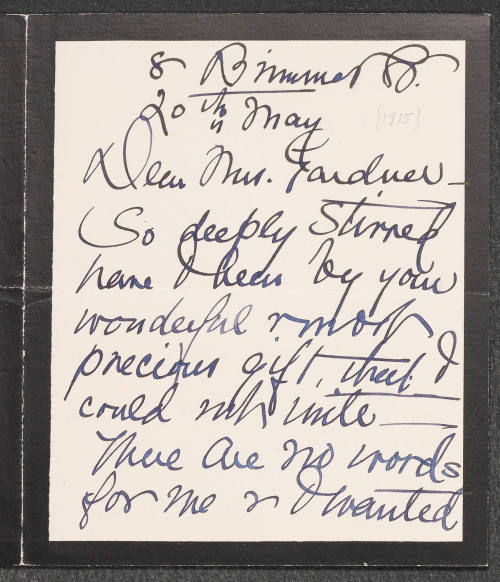 8 Brimmer St.
20th May [1915]
Dear Mrs. Gardner—
So deeply stirred
have I been by your
wonderful & most
precious gift, that I
could not write—
There are no words
for me & I wanted